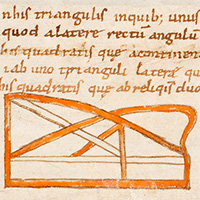 nbis triangulis inquib; unus
quod alatere rectū angulū
bis quadratis que acontinen
i ab uno triangulī latere que
his quadratis que ab reliqis duo